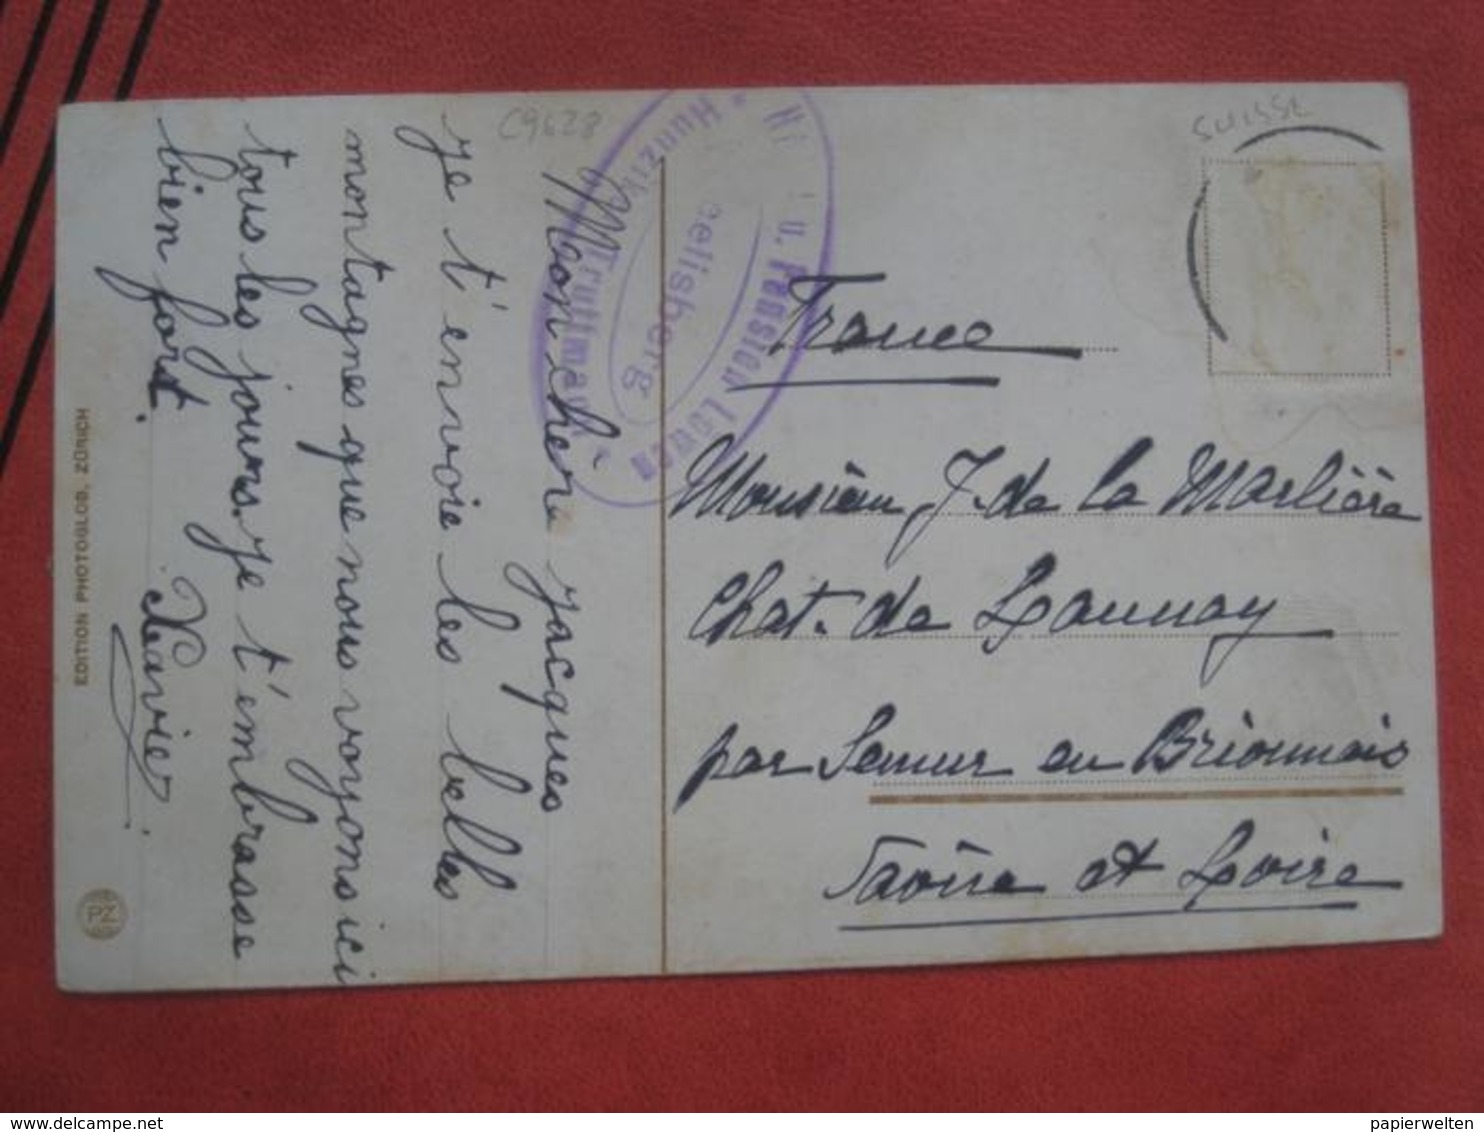 C9628
SUISSE
u. Pension Löwen
Seelisberg
Truttmann
Mon chère Jacques
je t'envoie les belles
montagnes que nous voyons ici
tous les jours. Je t'embrasse
bien fort.
Xavier
France
Monsieur J. de la Marlière
Chat. de Launay
par Semur en Brionnais
Saône et Loire
EDITION PHOTOGLOB, ZÜRICH
PZ
www.delcampe.net
papierwelten